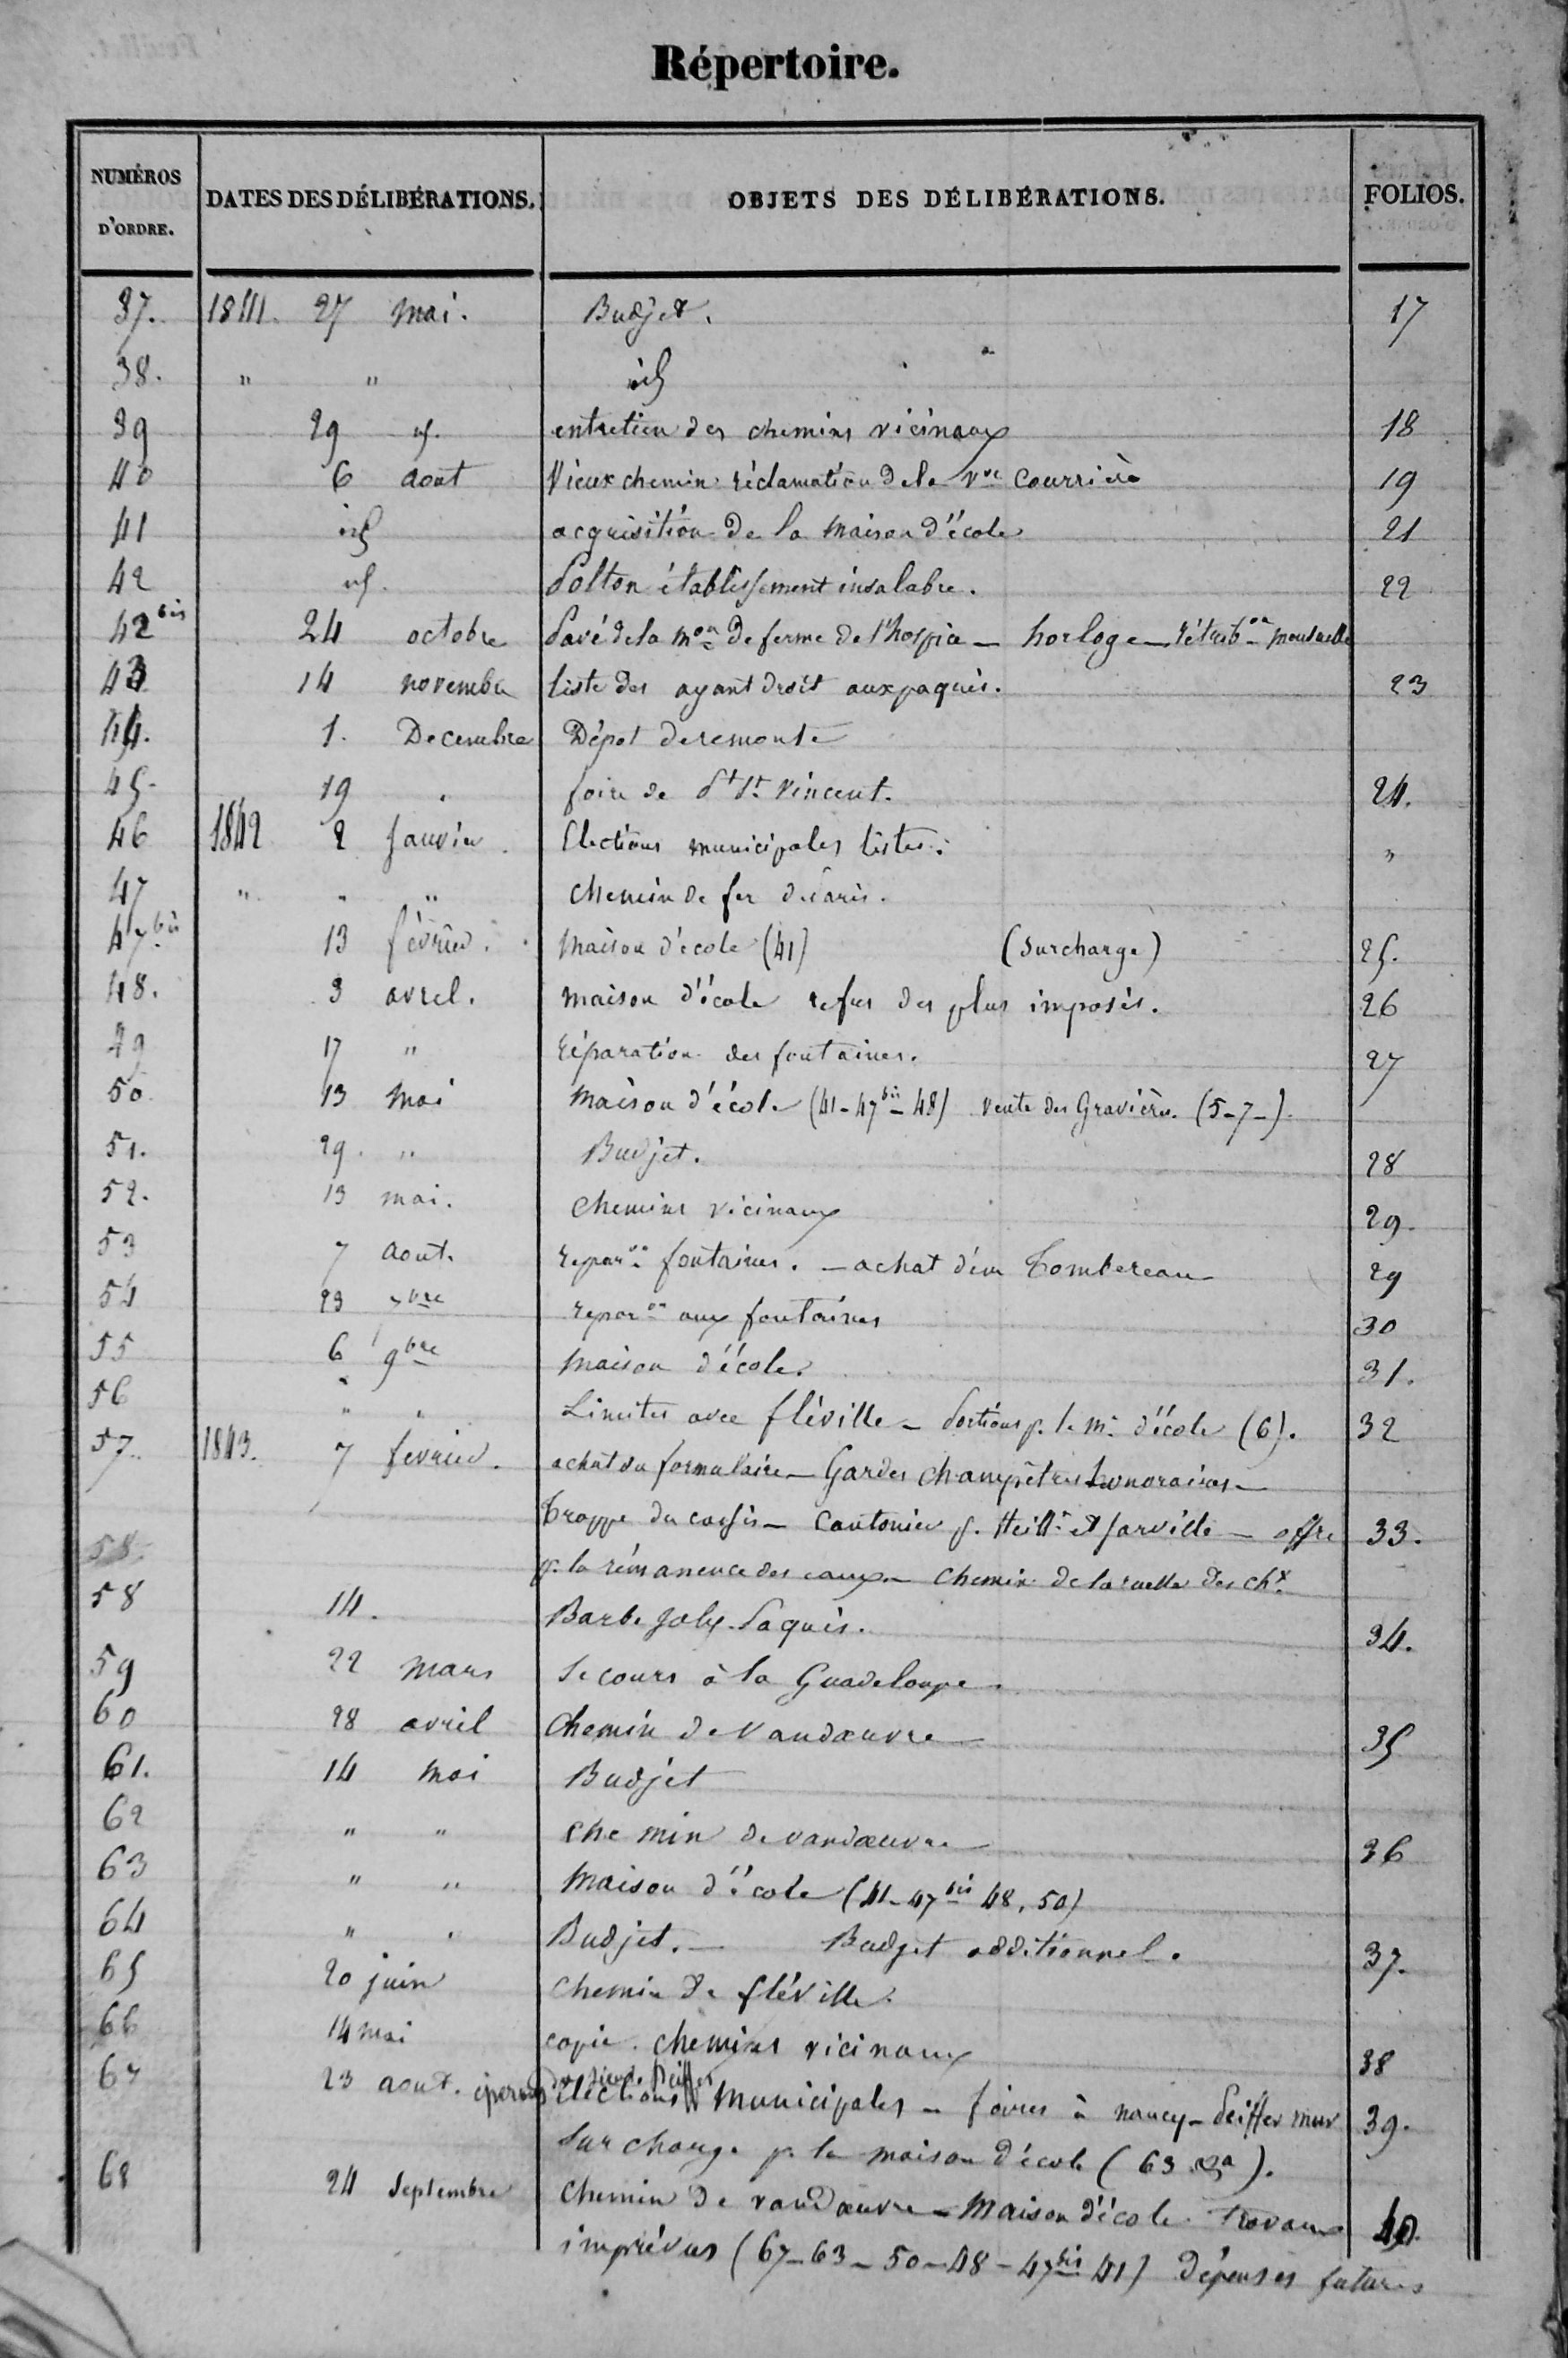 Répertoire.
NUMÉROS D'ORDRE. DATES DES DÉLIBÉRATIONS. OBJETS DES DÉLIBÉRATIONS. FOLIOS.
37. 1841. 27 mai. Budjet. 17
38. " " id
39 29 id. entretien des chemins vicinaux 18
40 6 aout Vieux chemin réclamation de la Vve Courrière 19
41 id acquisition de la maison d'école 21
42 id. établissement insalabre. 22
42 bis 24 octobre Pavé de la mon de ferme de l'hospice - horloge - rétribon mensuelle
43 14 novembre liste des ayant droit aux paquis. 23
44. 1. Decembre Dépot de remonte
45. 19 foire de St Vincent. 24.
46 1842 2 Janvier. Elections municipales listes. "
47 " " " chemin de fer de Paris.
47 bis 13 février. maison d'école (41) (surcharge) 25.
48. 3 avril. maison d'école refus des plus imposés. 26
49 17 " réparation des fontaines. 27
50 13 mai maison d'école (41-47bis-48) vente des Gravières. (5-7-).
51. 29. " Budjet. 28
52. 13 mai. chemins vicinaux 29.
53 7 aout. reparon fontaines. - achat d'un Tombereau 29
54 23 7bre reparon aux fontaines 30
55 6 9bre maison d'école. 31.
56 " " Limites avec fléville - Portions p. le m. d'école (6). 32
57. 1843. 7 fevrier. achat du formulaire - Gardes champêtres honoraires -
Trappe du - Cantonier p. Heill. et Jarville - offre 33.
58
p. la rémanence des eaux - chemin de la ruelle des chx
58 14. Barbe Joly. Paquis. 34.
59 22 mars Secours à la Guadeloupe.
60 28 avril chemin de Vandœuvre 35
61. 14 mai Budjet
62 " " chemin de vandœuvre 36
63 " " maison d'école (41-47bis 48, 50)
64 " " Budjet. - Budget additionnel. 37.
65 20 juin chemin de fléville.
66 14 mai copie. chemins vicinaux 38
du sieur Peiffer
67 23 aout. élections municipales - foires à nancy - Peiffer mur 39.
Surcharge p. la maison d'école (63 &a).
68 24 septembre chemin de vandœuvre - maison d'école travaux 40.
imprévus (67-63-50-48-47bis 41) Dépenses futures